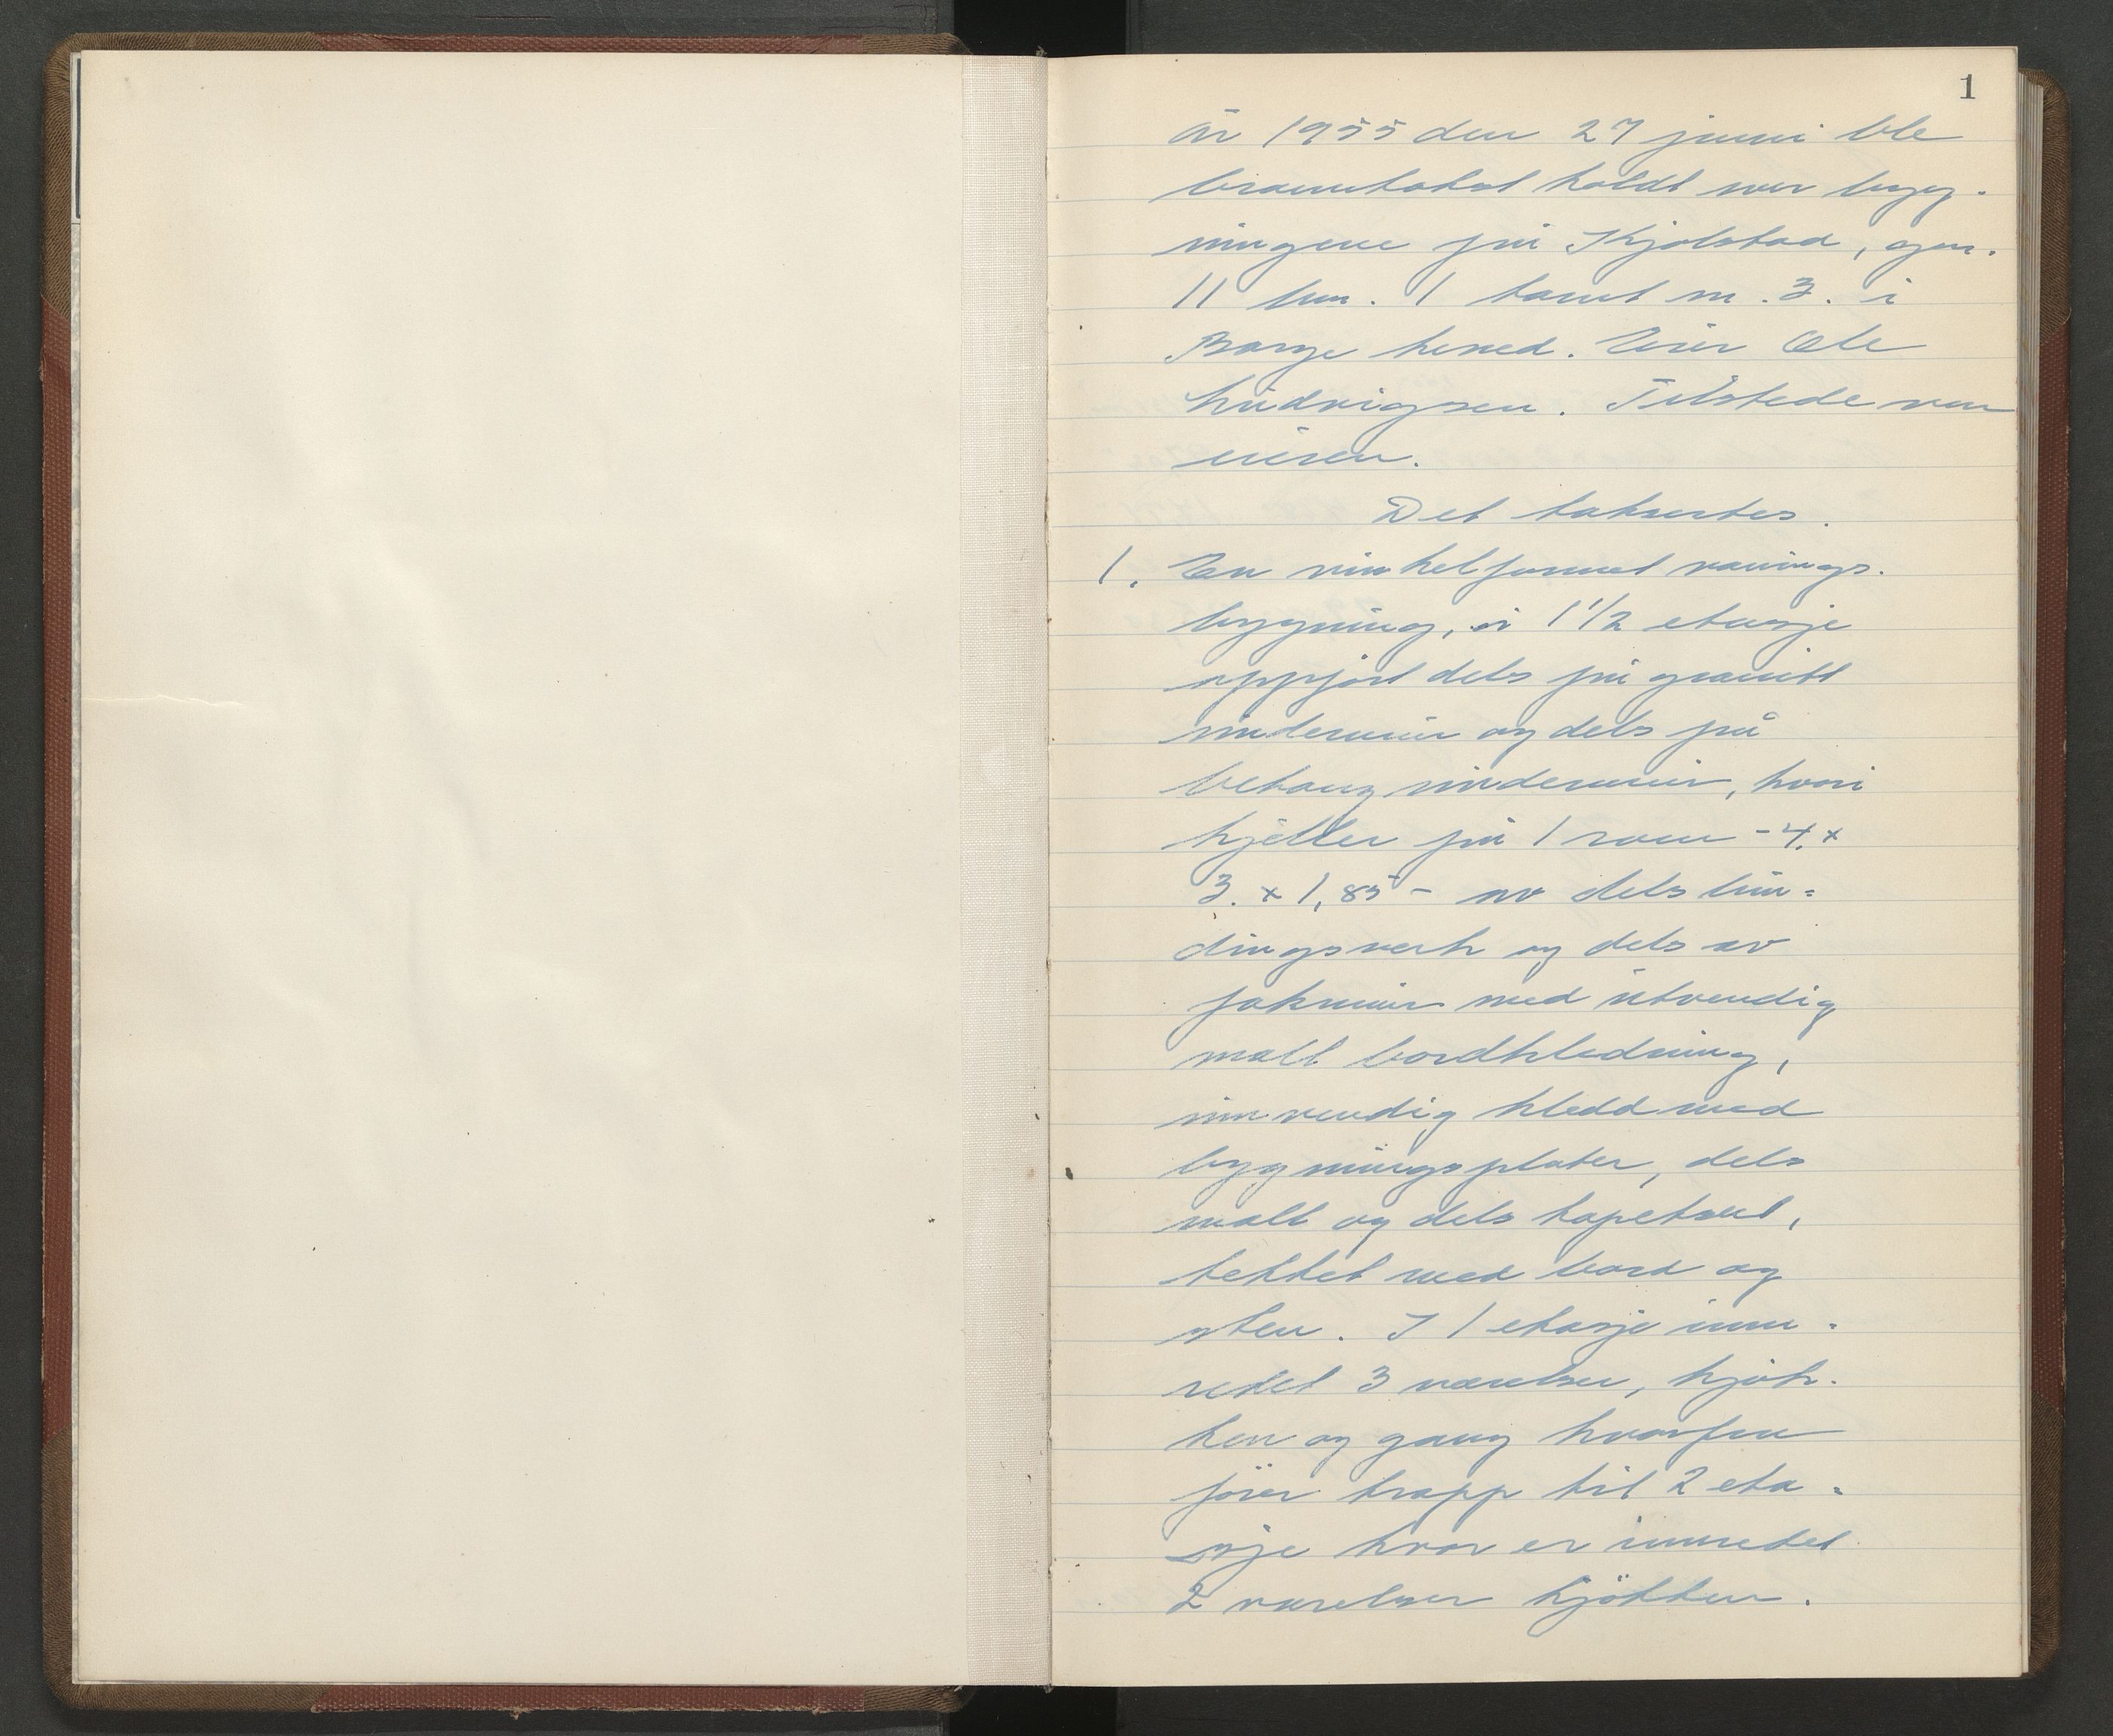 1
År 1955 den 27 juni ble
branntakst holdt over byg-
ningene på Kjølstad, gnr.
11 bnr. 1 takst nr. 3. i
Borge herred. Eier Ole
Ludvigsen. Tilstede var
eieren.
Det taksertes.
1. En vinkelformet vånings-
bygning, i 1 1/2 etasje
oppført dels på granitt
undermur og dels på
betong undermur, hvori
kjeller på 1 rom - 4. x
3. x 1,85 - av dels bin=
dingsverk og dels av
jakmur med utvendig
malt bordkledning,
innvendig kledd med
bygningsplater, dels
malt og dels tapetsert,
tekket med bord og
sten. I 1 etasje inn=
redet 3 værelser, kjøk-
ken og gang hvorfra
fører trapp til 2 eta=
sje hvor er innredet
2 værelser kjökken.